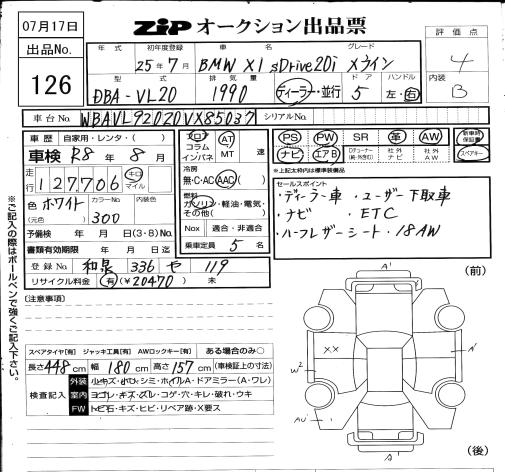 07月17日
ZIP オークション出品票
出品No.
126
年式 初年度登録 車名 グレード
25年7月 BMW X1 sDrive20i Xライン
型式 排気量 ドア ハンドル
DBA-VL20 1990 ディーラー・並行 5 左・右
評価点
4
内装
B
車台No. WBAVL92020VX85037 シリアルNo.
車歴 自家用・レンタ・( )
車検 R8年 8月
走行 127,706 キロ マイル
色 ホワイト カラーNo. 300 内装色
(元色)
予備検 年 月 日(3・8)No.
書類有効期限 年 月 日
登録No. 和泉 336 せ 119
リサイクル料金 有(¥20470) 未
フロア コラム インパネ AT MT 速
冷房
無・C・AC AAC( )
燃料
ガソリン・軽油・電気・
その他( )
Nox 適合・非適合
乗車定員 5 名
PS PW SR 革 AW 新車時保証書
ナビ エアB Dチョーナー 社外ナビ 社外AW スペアキー
*上記太枠内は標準装備品
セールスポイント
・ディーラー車 ・ユーザー下取車
・ナビ ・ETC
・ハーフレザーシート ・18AW
※ご記入の際はボールペンで強くご記入下さい。
(注意事項)
スペアタイヤ[有] ジャッキ工具[有] AWロックキー[有] ある場合のみ○
長さ448cm 幅180cm 高さ157cm (車検証上の寸法)
検査記入
外装 小キズ・小凹・シミ・ホイルA・ドアミラー(A・ワレ)
室内 ヨゴレ・キズ・スレ・コゲ・穴・キレ・破れ・ウキ
FW トビ石・キズ・ヒビ・リペア跡・X要ス
(前)
A'
XX
A'
W2
A'
(後)